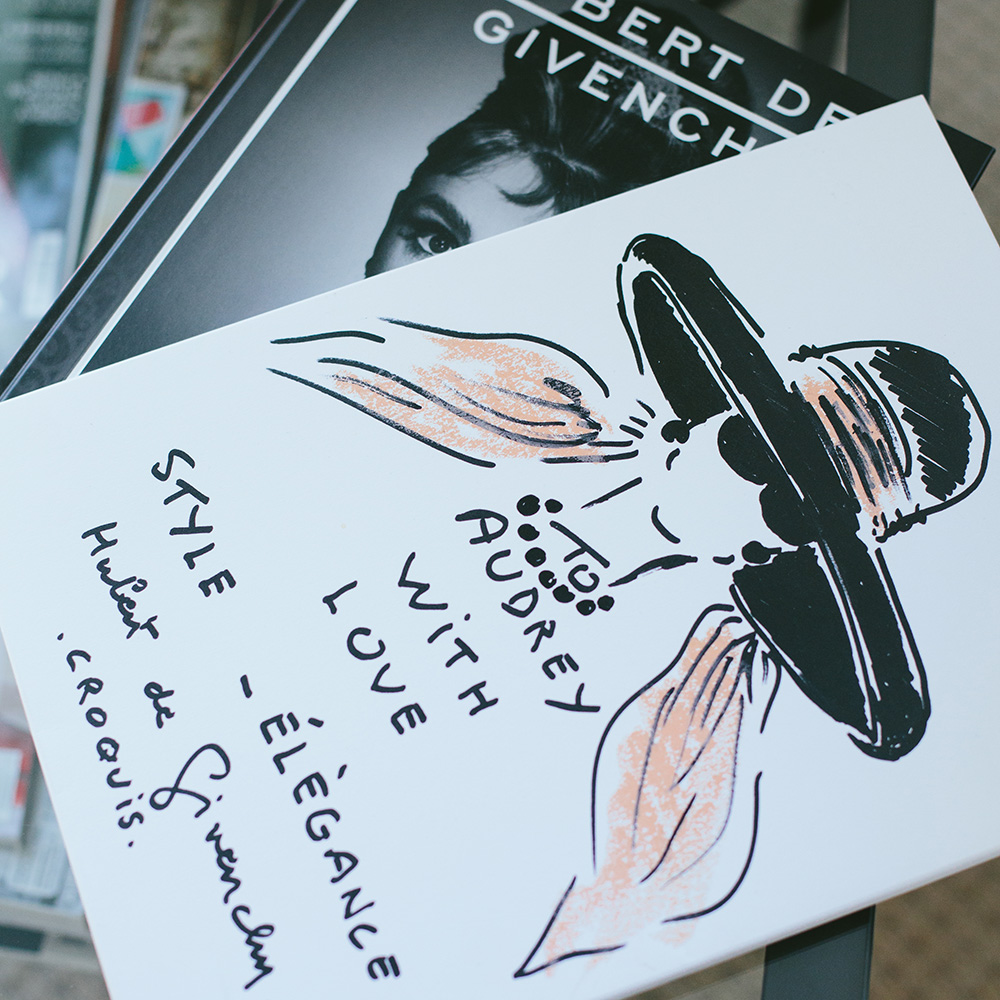 BERT DE
GIVENCH
TO
AUDREY
WiTH
LOVE
STYLE - ÉLÉGANCE
Hubert de Givenchy
.CROQUiS.